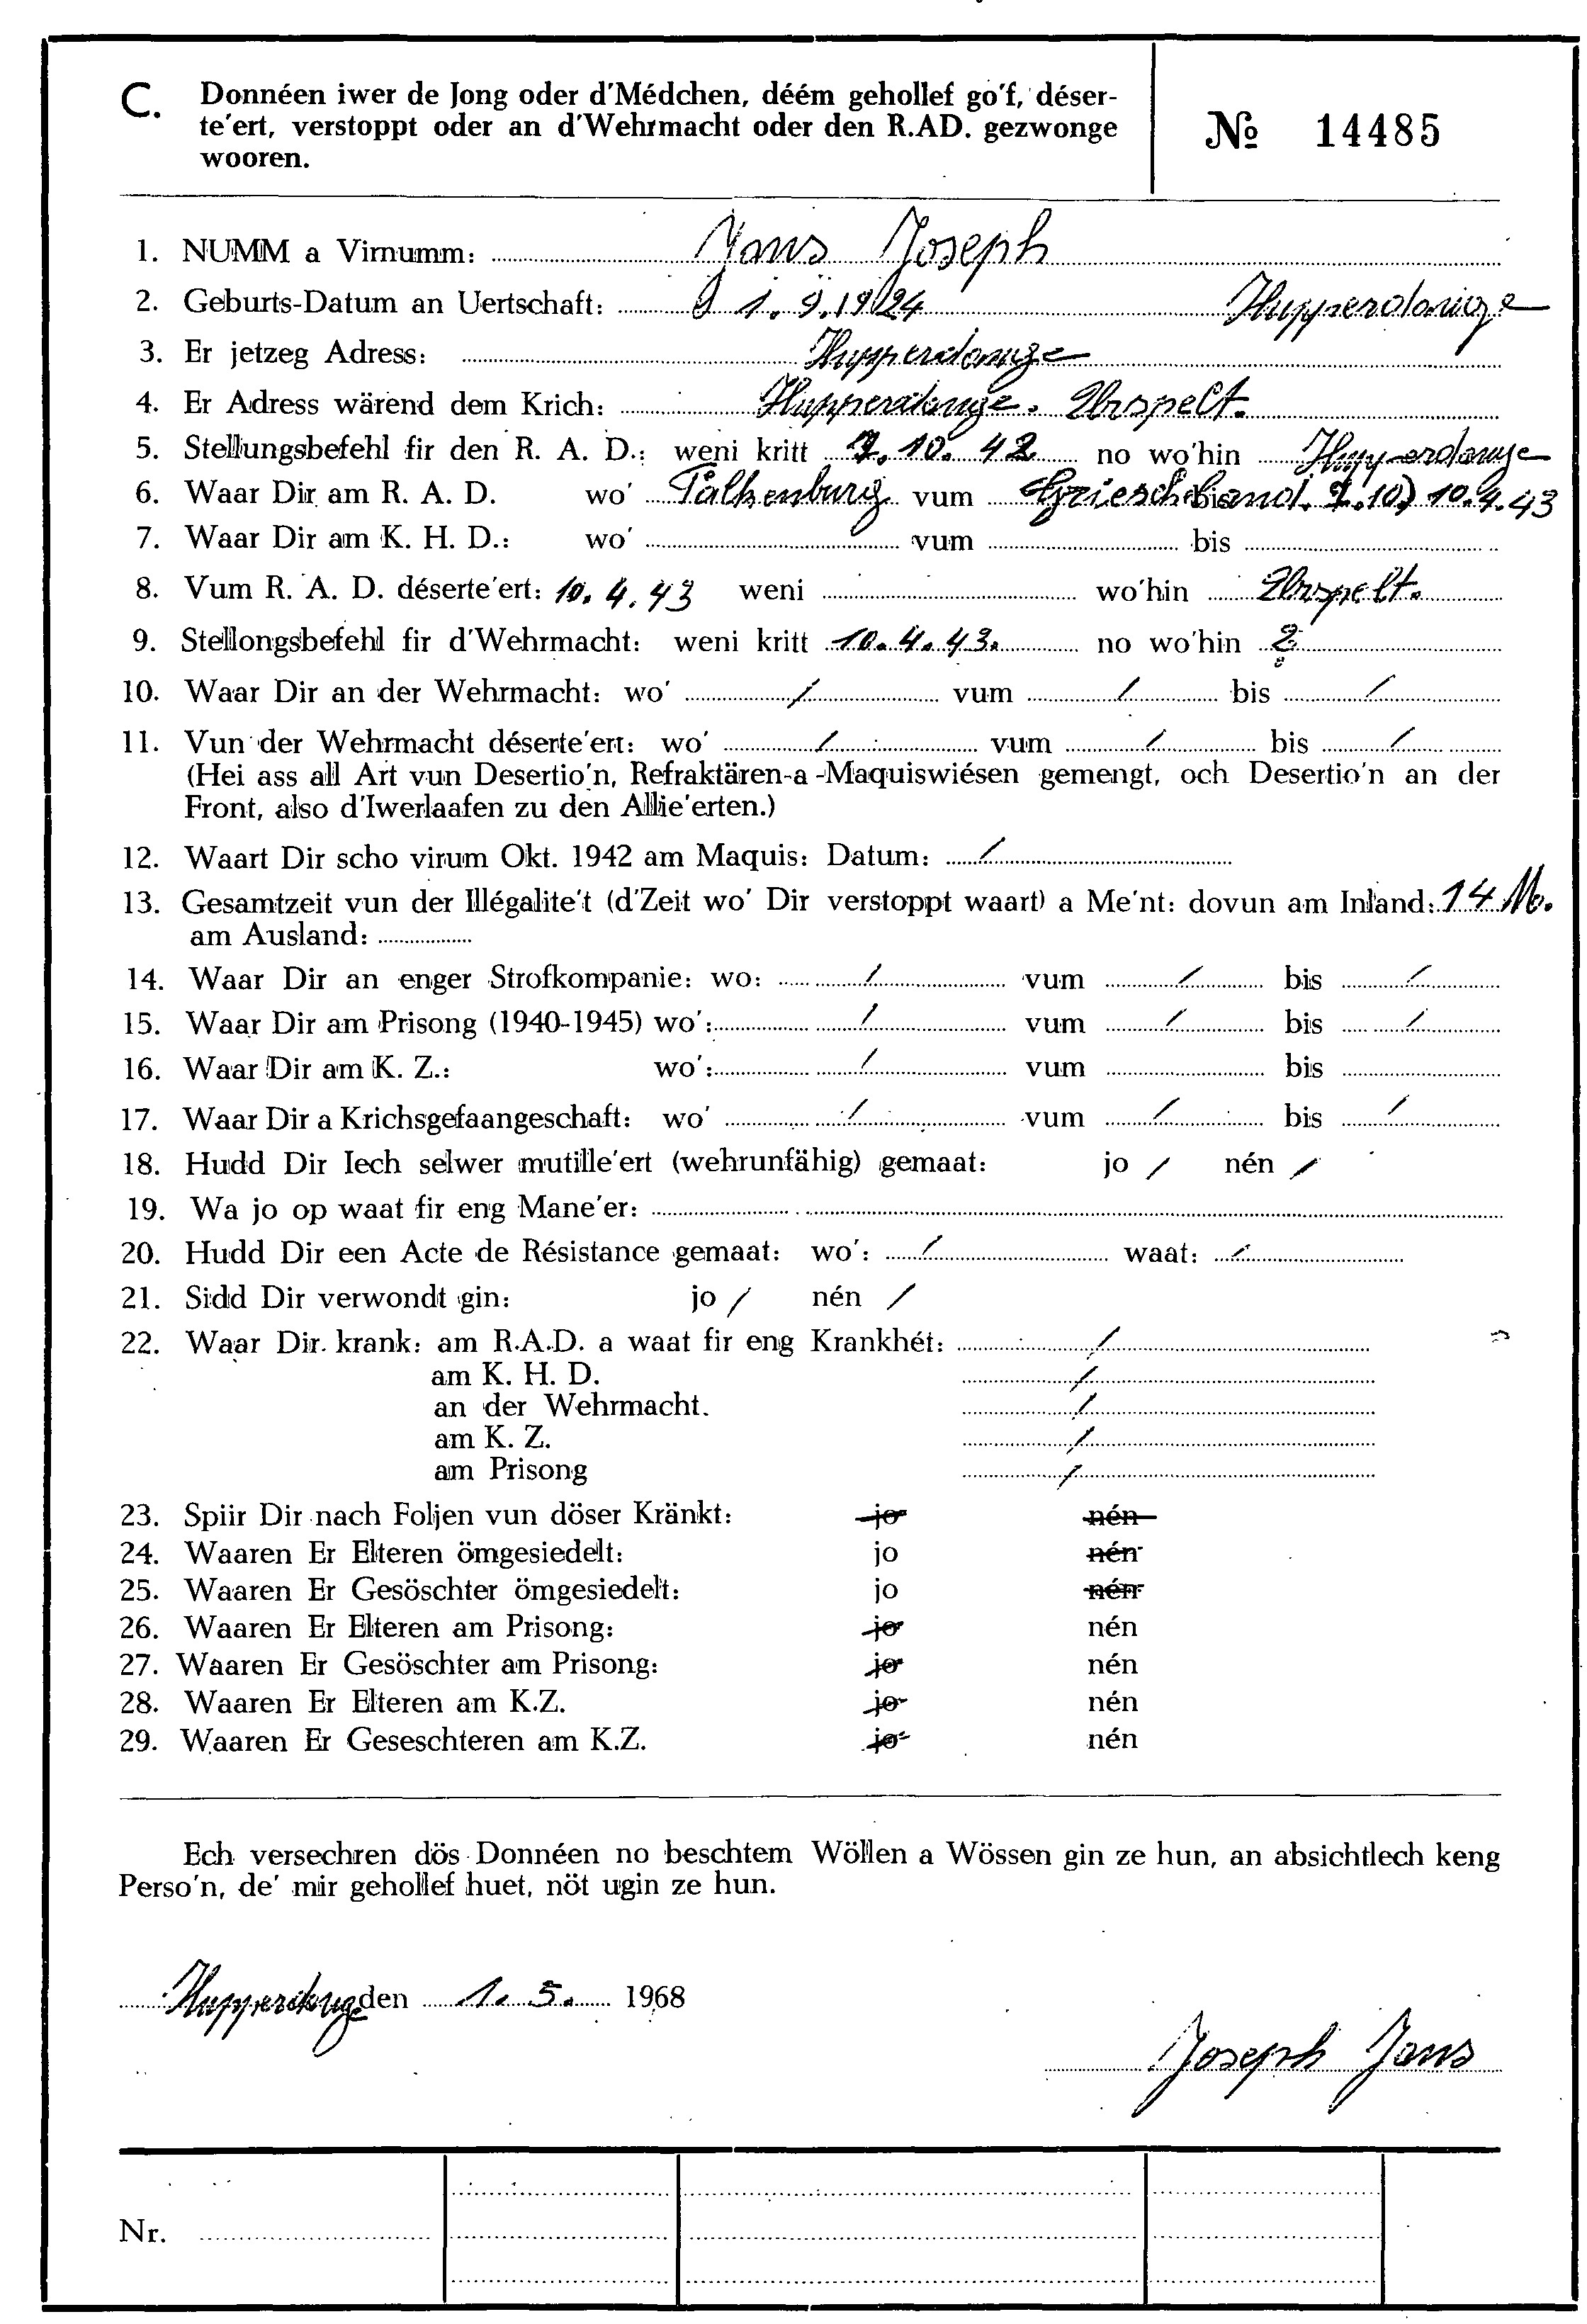 C. Donnéen iwer de Jong oder d'Médchen, déém gehollef go'f, déser-
te'ert, verstoppt oder an d'Wehrmacht oder den R.AD. gezwonge
wooren.
№ 14485
1. NUMM a Virnumm: Jans Joseph
2. Geburts-Datum an Uertschaft: 1.9.1924 Hupperdange
3. Er jetzeg Adress: Hupperdange
4. Er Adress wärend dem Krich: Hupperdange. Urspelt.
5. Stellungsbefehl fir den R. A. D.: weni kritt 7.10. 42 no wo'hin Hupperdange
6. Waar Dir am R. A. D. wo' Falkenburg vum bis 10.4.43
7. Waar Dir am K. H. D.: wo' vum bis
8. Vum R. A. D. déserte'ert: 10.4.43 weni wo'hin Urspelt.
9. Stellongsbefehl fir d'Wehrmacht: weni kritt 10.4.43. no wo'hin ?
10. Waar Dir an der Wehrmacht: wo' / vum / bis /
11. Vun der Wehrmacht déserte'ert: wo' / vum / bis /
(Hei ass all Art vun Desertio'n, Refraktären-a-Maquiswiésen gemengt, och Desertio'n an der
Front, also d'Iwerlaafen zu den Allie'erten.)
12. Waart Dir scho virum Okt. 1942 am Maquis: Datum: /
13. Gesamtzeit vun der Illégalite't (d'Zeit wo' Dir verstoppt waart) a Me'nt: dovun am Inland: 14 M.
am Ausland:
14. Waar Dir an enger Strofkompanie: wo: / vum / bis /
15. Waar Dir am Prisong (1940-1945) wo': / vum / bis /
16. Waar Dir am K. Z.: wo': / vum bis
17. Waar Dir a Krichsgefaangeschaft: wo' / vum / bis /
18. Hudd Dir Iech selwer mutille'ert (wehrunfähig) gemaat: jo / nén /
19. Wa jo op waat fir eng Mane'er:
20. Hudd Dir een Acte de Résistance gemaat: wo': / waat: /
21. Sidd Dir verwondt gin: jo / nén /
22. Waar Dir krank: am R.A.D. a waat fir eng Krankhét: /
am K. H. D. /
an der Wehrmacht. /
am K. Z. /
am Prisong /
23. Spiir Dir nach Foljen vun döser Kränkt: jo nén
24. Waaren Er Elteren ömgesiedelt: jo nén
25. Waaren Er Gesöschter ömgesiedelt: jo nén
26. Waaren Er Elteren am Prisong: jo nén
27. Waaren Er Gesöschter am Prisong: jo nén
28. Waaren Er Elteren am K.Z. jo nén
29. Waaren Er Geseschteren am K.Z. jo nén
Ech versechren dös Donnéen no beschtem Wöllen a Wössen gin ze hun, an absichtlech keng
Perso'n, de' mir gehollef huet, nöt ugin ze hun.
Hupperdange den 1. 5. 1968
Joseph Jans
Nr.